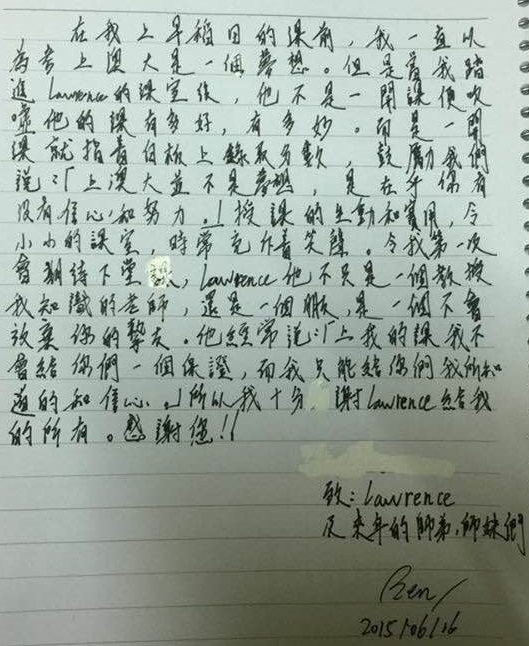 在我上早稻田的課前，我一直以
為考上澳大是一個夢想。但是當我踏
進Lawrence的課室後，他不是一開課便吹
噓他的課有多好，有多妙。而是一開
課就指着白板上錄取分數，鼓勵我們
說：「上澳大並不是夢想，是在乎你有
沒有信心和努力。」授課的生動和實用，令
小小的課室，時常充斥着笑聲。令我第一次
會期待下堂課，Lawrence他不只是一個教授
我知識的老師，還是一個朋友，是一個不會
放棄你的摯友。他經常說：「上我的課我不
會給你們一個保證，而我只能給你們我所知
道的和信心。」所以我十分 謝Lawrence給我
的所有。感謝您!!
致：Lawrence
及來年的師弟，師妹們
Ben
2015/06/16